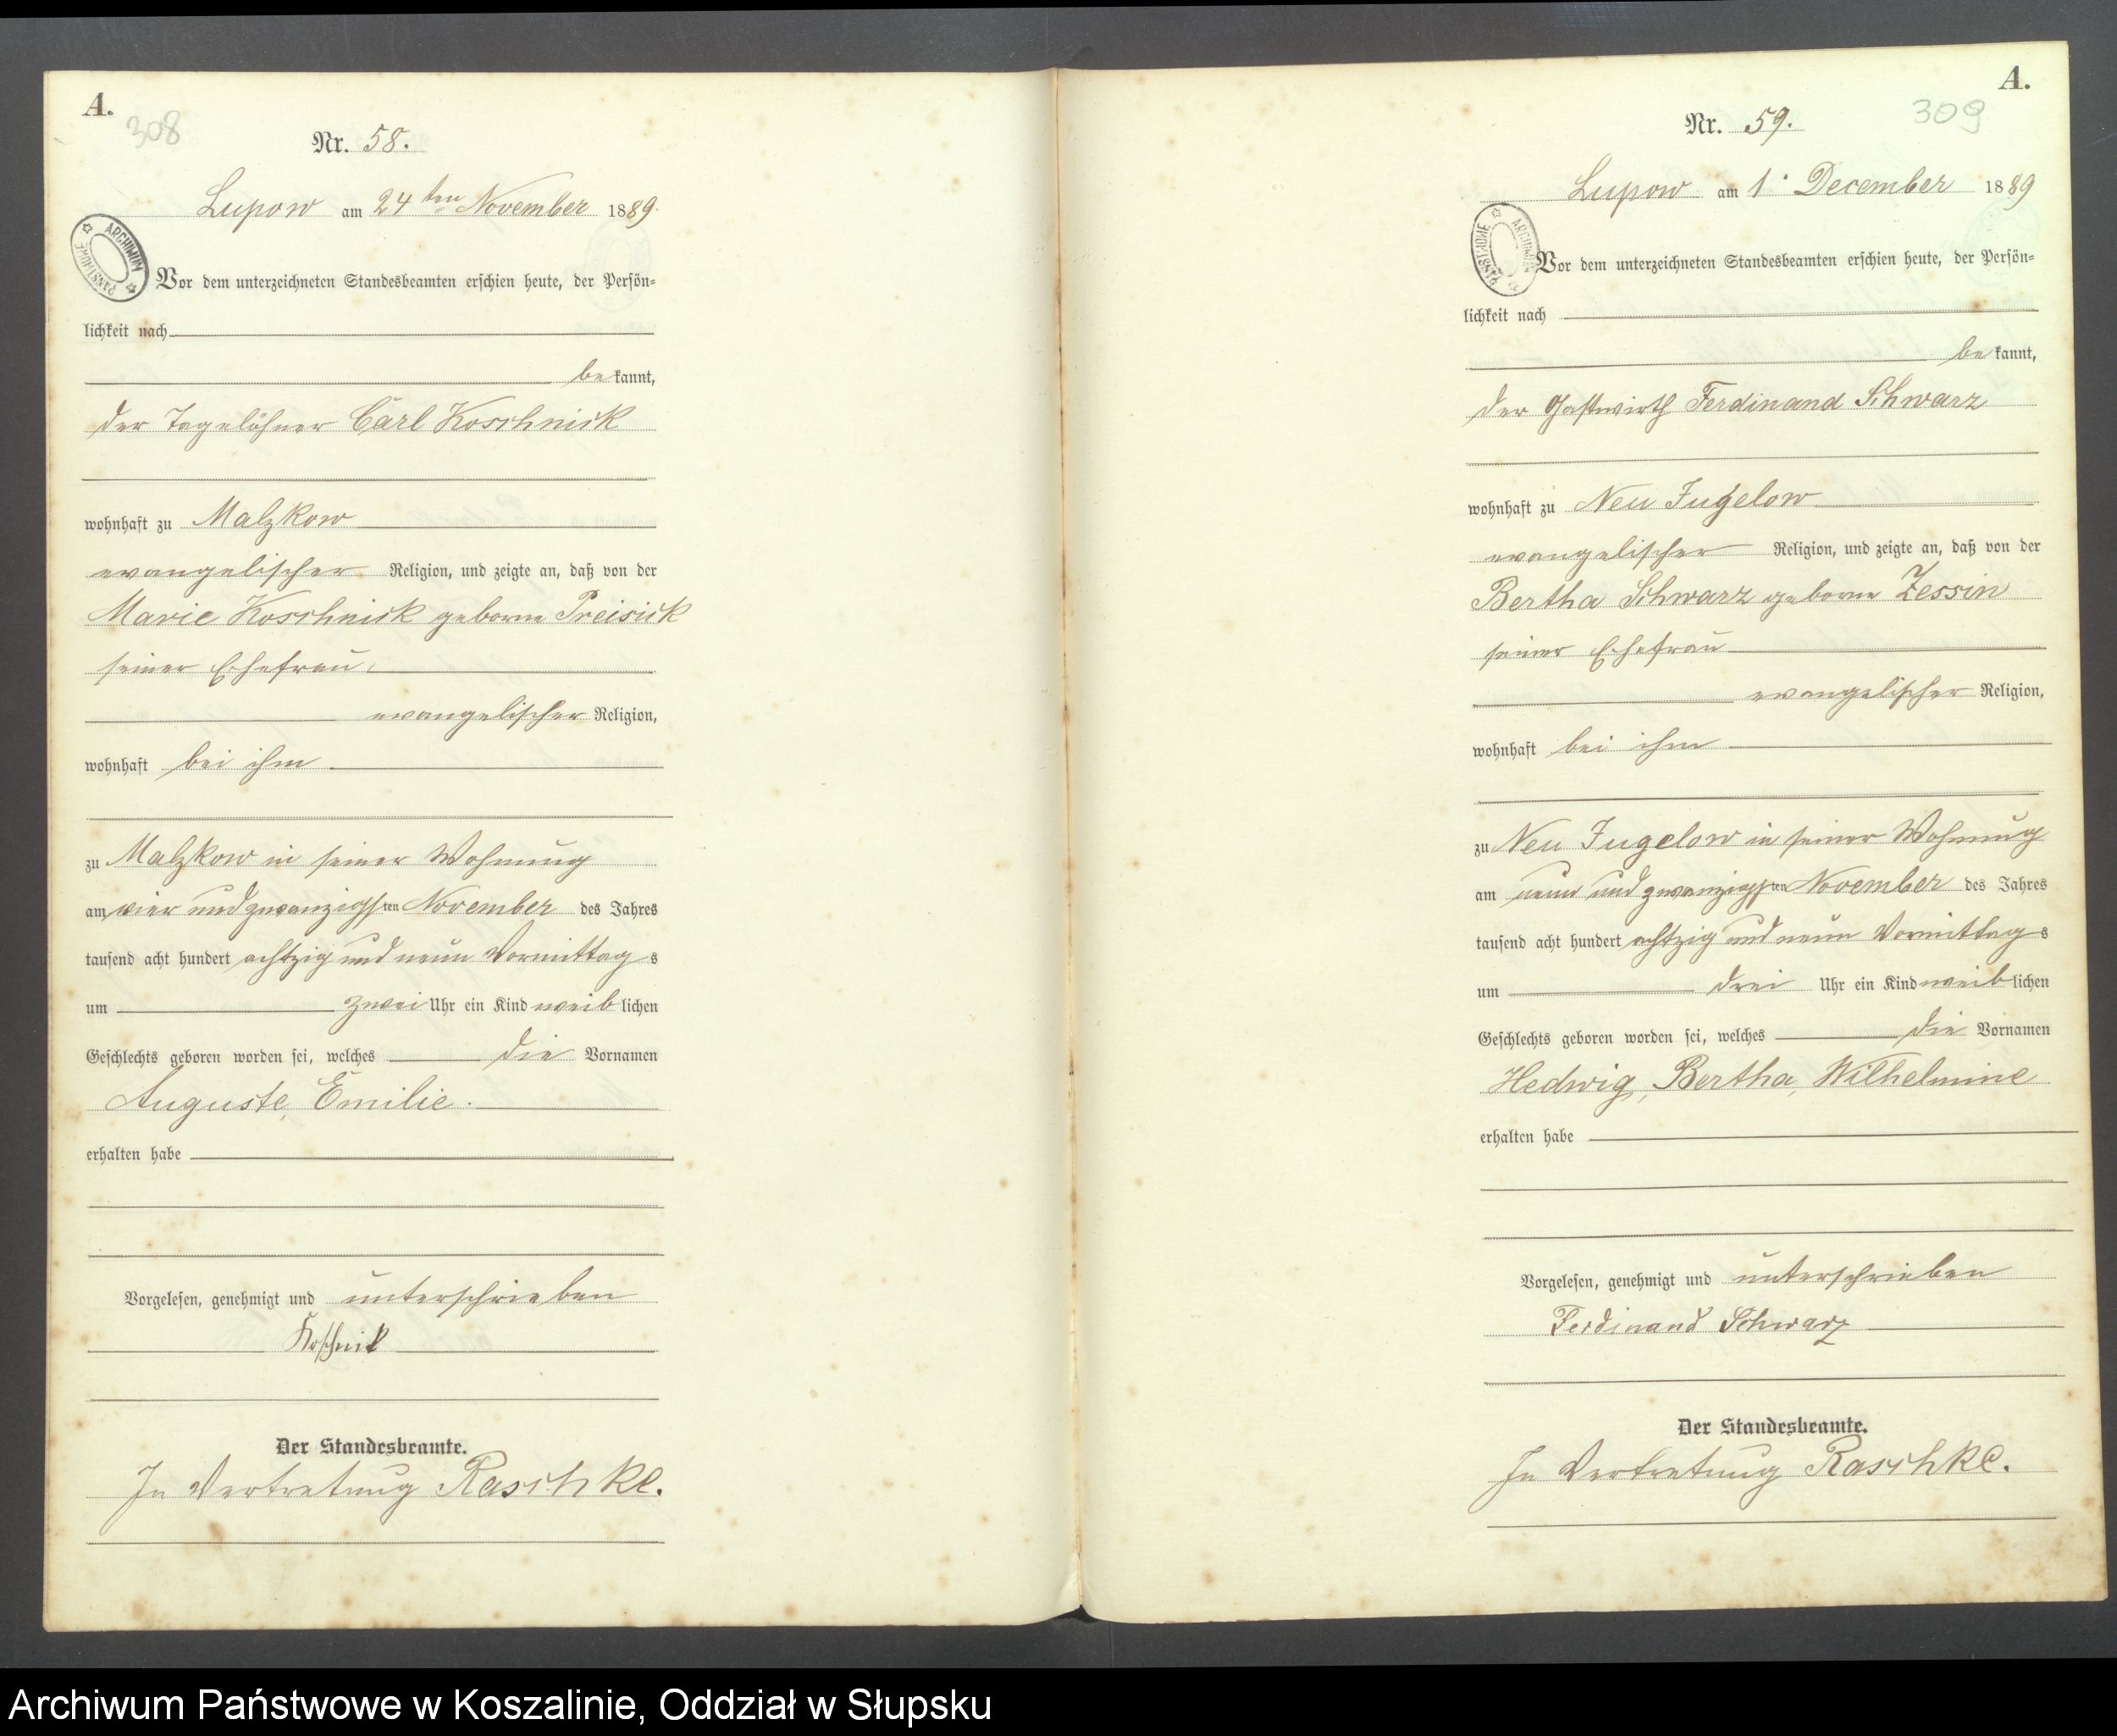 A.
308
Nr. 58.
Lupow am 24ten November 1889.
ARCHIWUM PAŃSTWOWE
Vor dem unterzeichneten Standesbeamten erschien heute, der Persön-
lichkeit nach
bekannt,
der Tagelöhner Carl Koschnick
wohnhaft zu Malzkow
evangelischer Religion, und zeigte an, daß von der
Marie Koschnick geborne Preisick
seiner Ehefrau
evangelischer Religion,
wohnhaft bei ihm
zu Malzkow in seiner Wohnung
am vier und zwanzigsten November des Jahres
tausend acht hundert achtzig und neun Vormittags
um zwei Uhr ein Kind weiblichen
Geschlechts geboren worden sei, welches die Vornamen
Auguste, Emilie.
erhalten habe
Vorgelesen, genehmigt und unterschrieben
Koschnik
Der Standesbeamte.
In Vertretung Raschke.
A.
309
Nr. 59.
Lupow am 1. December 1889
ARCHIWUM PAŃSTWOWE
Vor dem unterzeichneten Standesbeamten erschien heute, der Persön-
lichkeit nach
bekannt,
der Gastwirth Ferdinand Schwarz
wohnhaft zu Neu Jugelow
evangelischer Religion, und zeigte an, daß von der
Bertha Schwarz geborne Zessin
seiner Ehefrau
evangelischer Religion,
wohnhaft bei ihm
zu Neu Jugelow in seiner Wohnung
am neun und zwanzigsten November des Jahres
tausend acht hundert achtzig und neun Vormittags
um drei Uhr ein Kind weiblichen
Geschlechts geboren worden sei, welches die Vornamen
Hedwig, Bertha, Wilhelmine
erhalten habe
Vorgelesen, genehmigt und unterschrieben
Ferdinand Schwarz
Der Standesbeamte.
In Vertretung Raschke.
Archiwum Państwowe w Koszalinie, Oddział w Słupsku